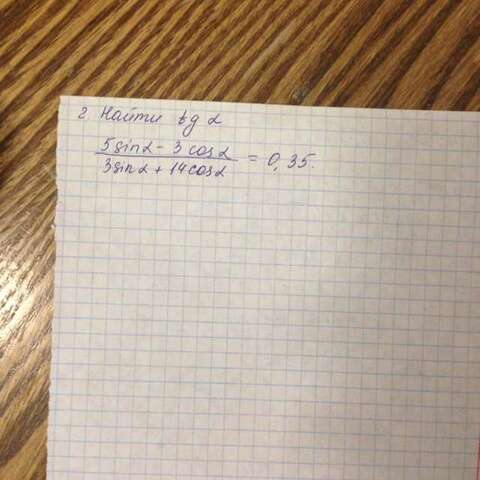 2. Найти tg α
5sinα - 3cosα / 3sinα + 14cosα = 0,35.